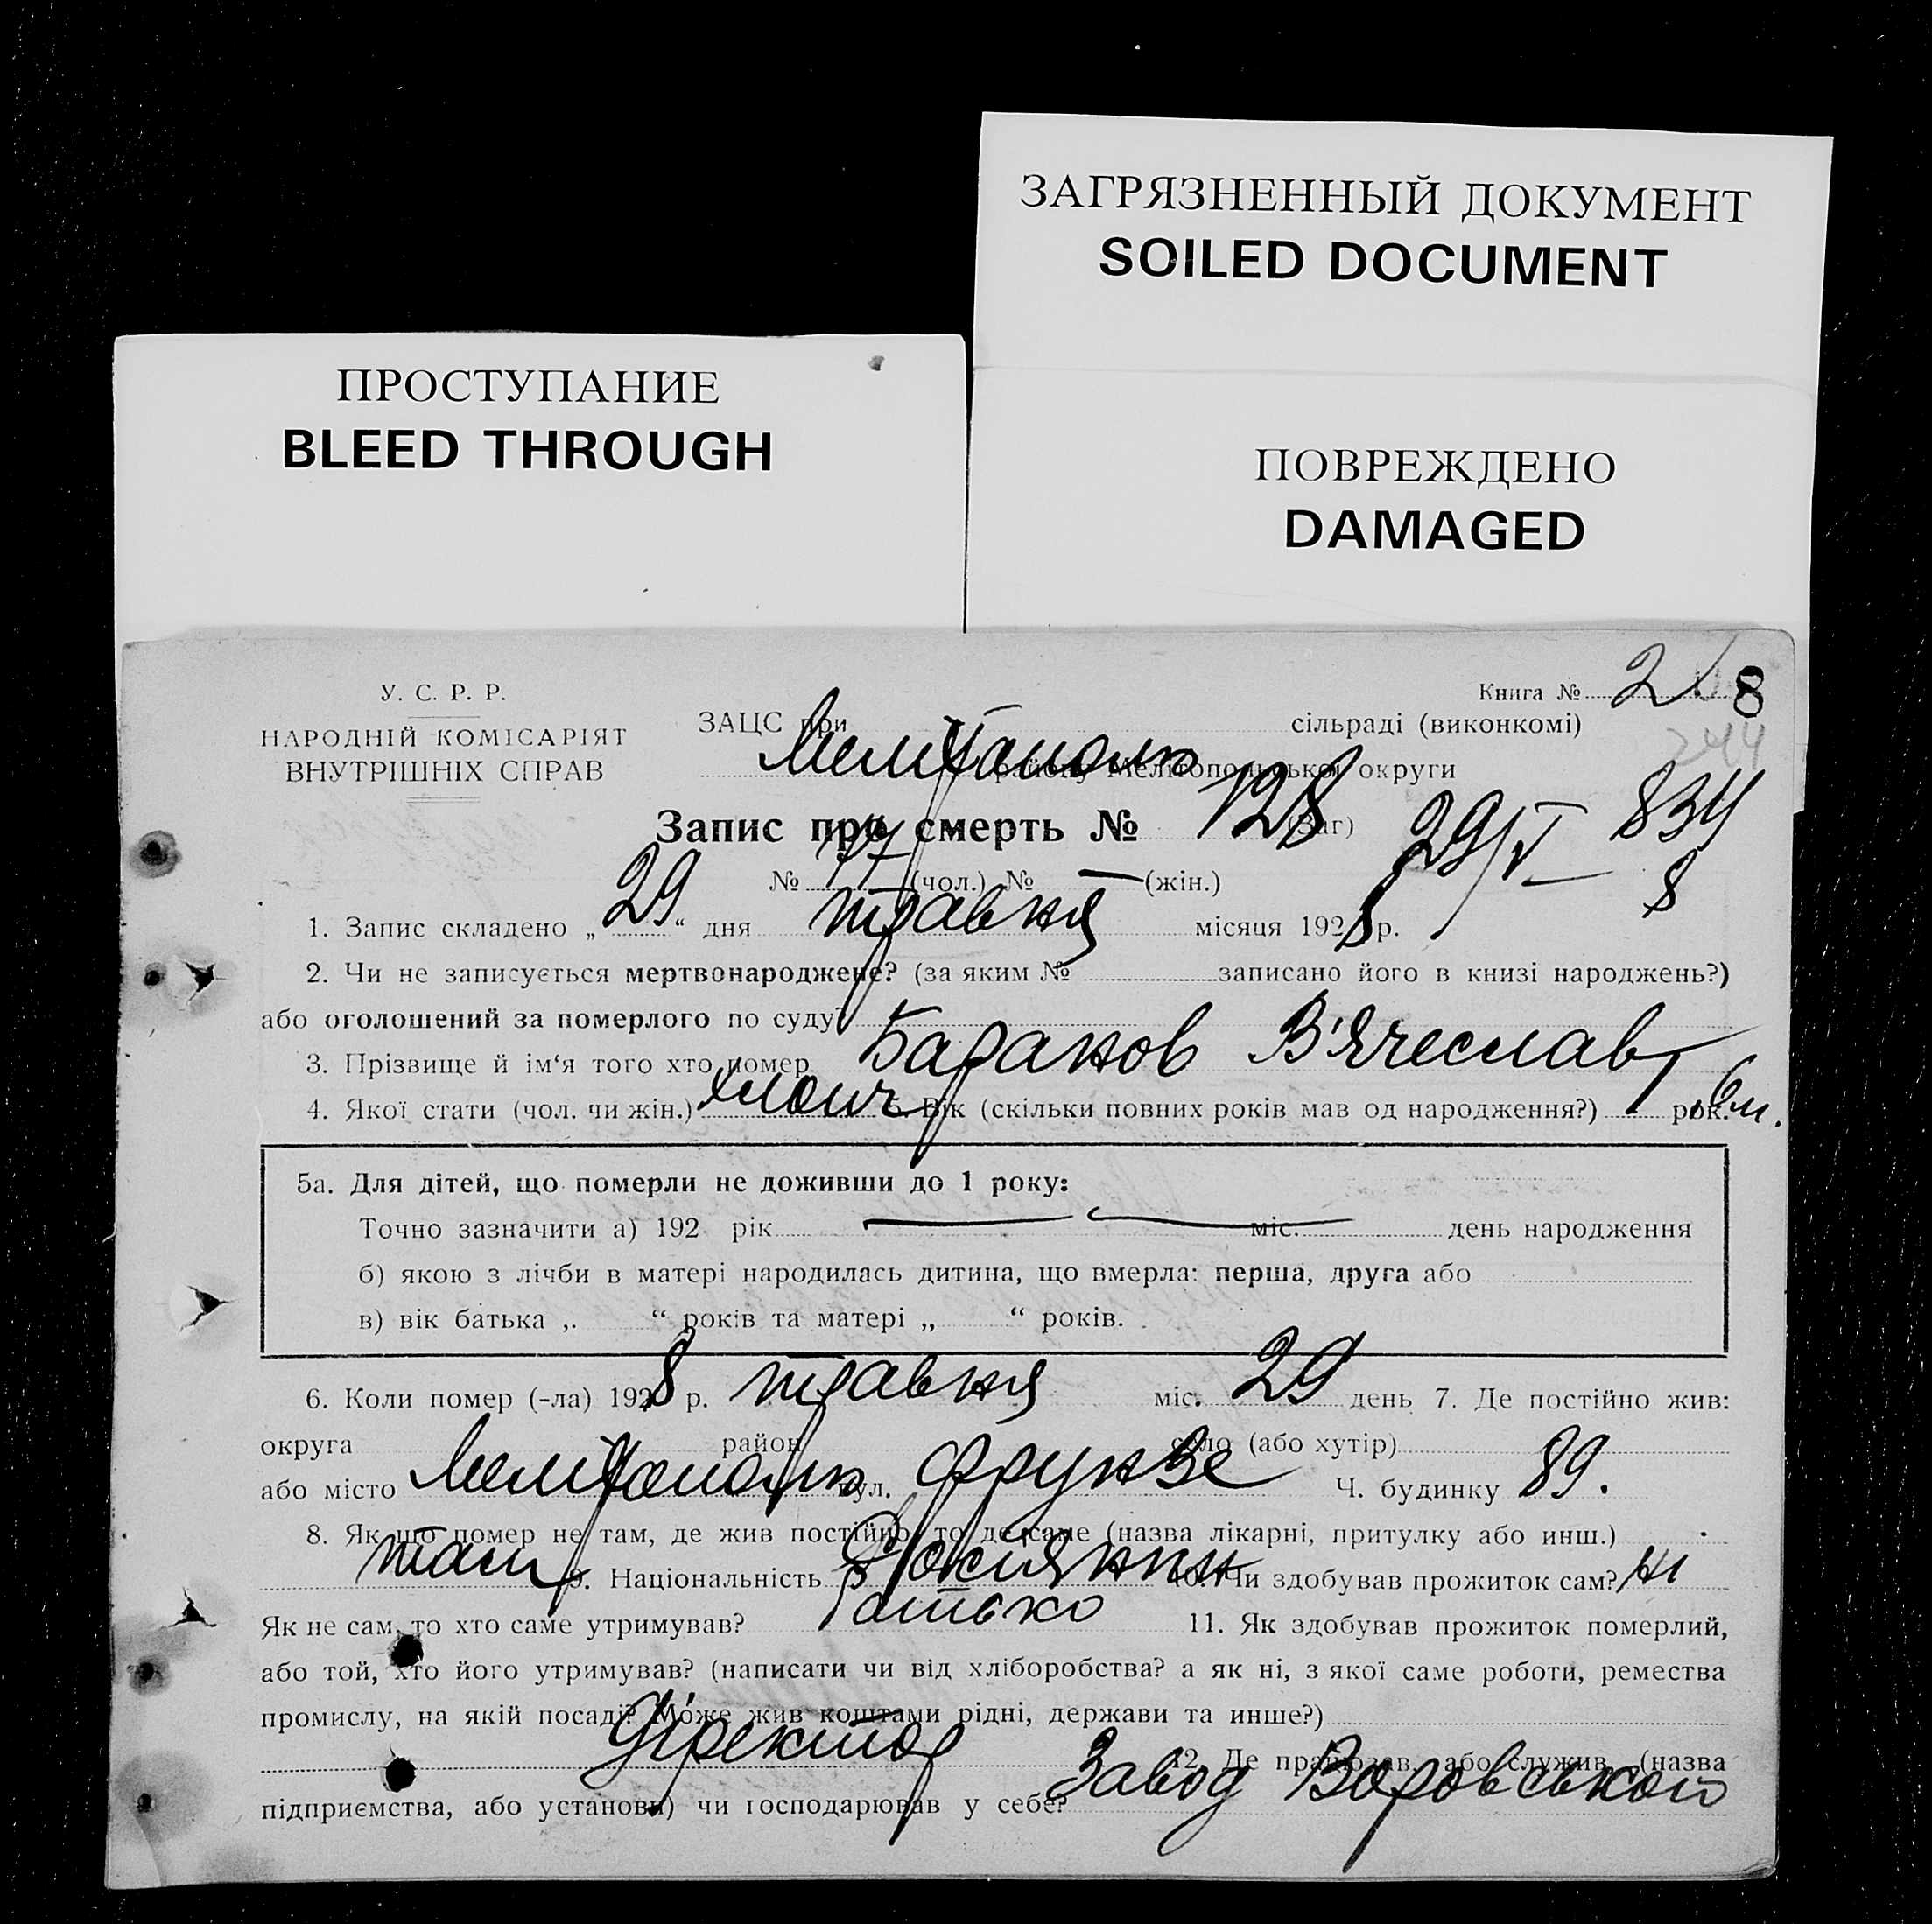 ЗАГРЯЗНЕННЫЙ ДОКУМЕНТ
SOILED DOCUMENT
ПРОСТУПАНИЕ
BLEED THROUGH
ПОВРЕЖДЕНО
DAMAGED
У. С. Р. Р.
НАРОДНІЙ КОМІСАРІЯТ
ВНУТРІШНІХ СПРАВ
Книга № 2 8
244
ЗАЦС при сільраді (виконкомі)
Мелітополь району Мелітопольської округи
Запис про смерть № 128 (заг) 29/V 834
№ 77 (чол.) № — (жін.) 8
1. Запис складено „ 29 “ дня травня місяця 1928 р.
2. Чи не записується мертвонароджене? (за яким № записано його в книзі народжень?)
або оголошений за померлого по суду?
3. Прізвище й ім‘я того хто помер Баранов В'ячеслав
4. Якої стати (чол. чи жін.) хлопч 5. Вік (скільки повних років мав од народження?) 1 рок. 6 м.
5а. Для дітей, що померли не доживши до 1 року:
Точно зазначити а) 192 рік міс. день народження
б) якою з лічби в матері народилась дитина, що вмерла: перша, друга або
в) вік батька „ “ років та матері „ “ років.
6. Коли помер (-ла) 1928 р. травня міс. 29 день 7. Де постійно жив:
округа район село (або хутір)
або місто Мелітополь вул. Фрунзе Ч. будинку 89.
8. Як що помер не там, де жив постійно, то де саме (назва лікарні, притулку або инш.)
там 9. Національність Росіянин 10. Чи здобував прожиток сам? ні
Як не сам, то хто саме утримував? батько 11. Як здобував прожиток померлий,
або той, хто його утримував? (написати чи від хліборобства? а як ні, з якої саме роботи, ремества
промислу, на якій посаді? Може жив коштами рідні, держави та инше?)
Діректор 12. Де працював, або служив (назва
підприємства, або установи) чи господарював у себе? Завод Воровського